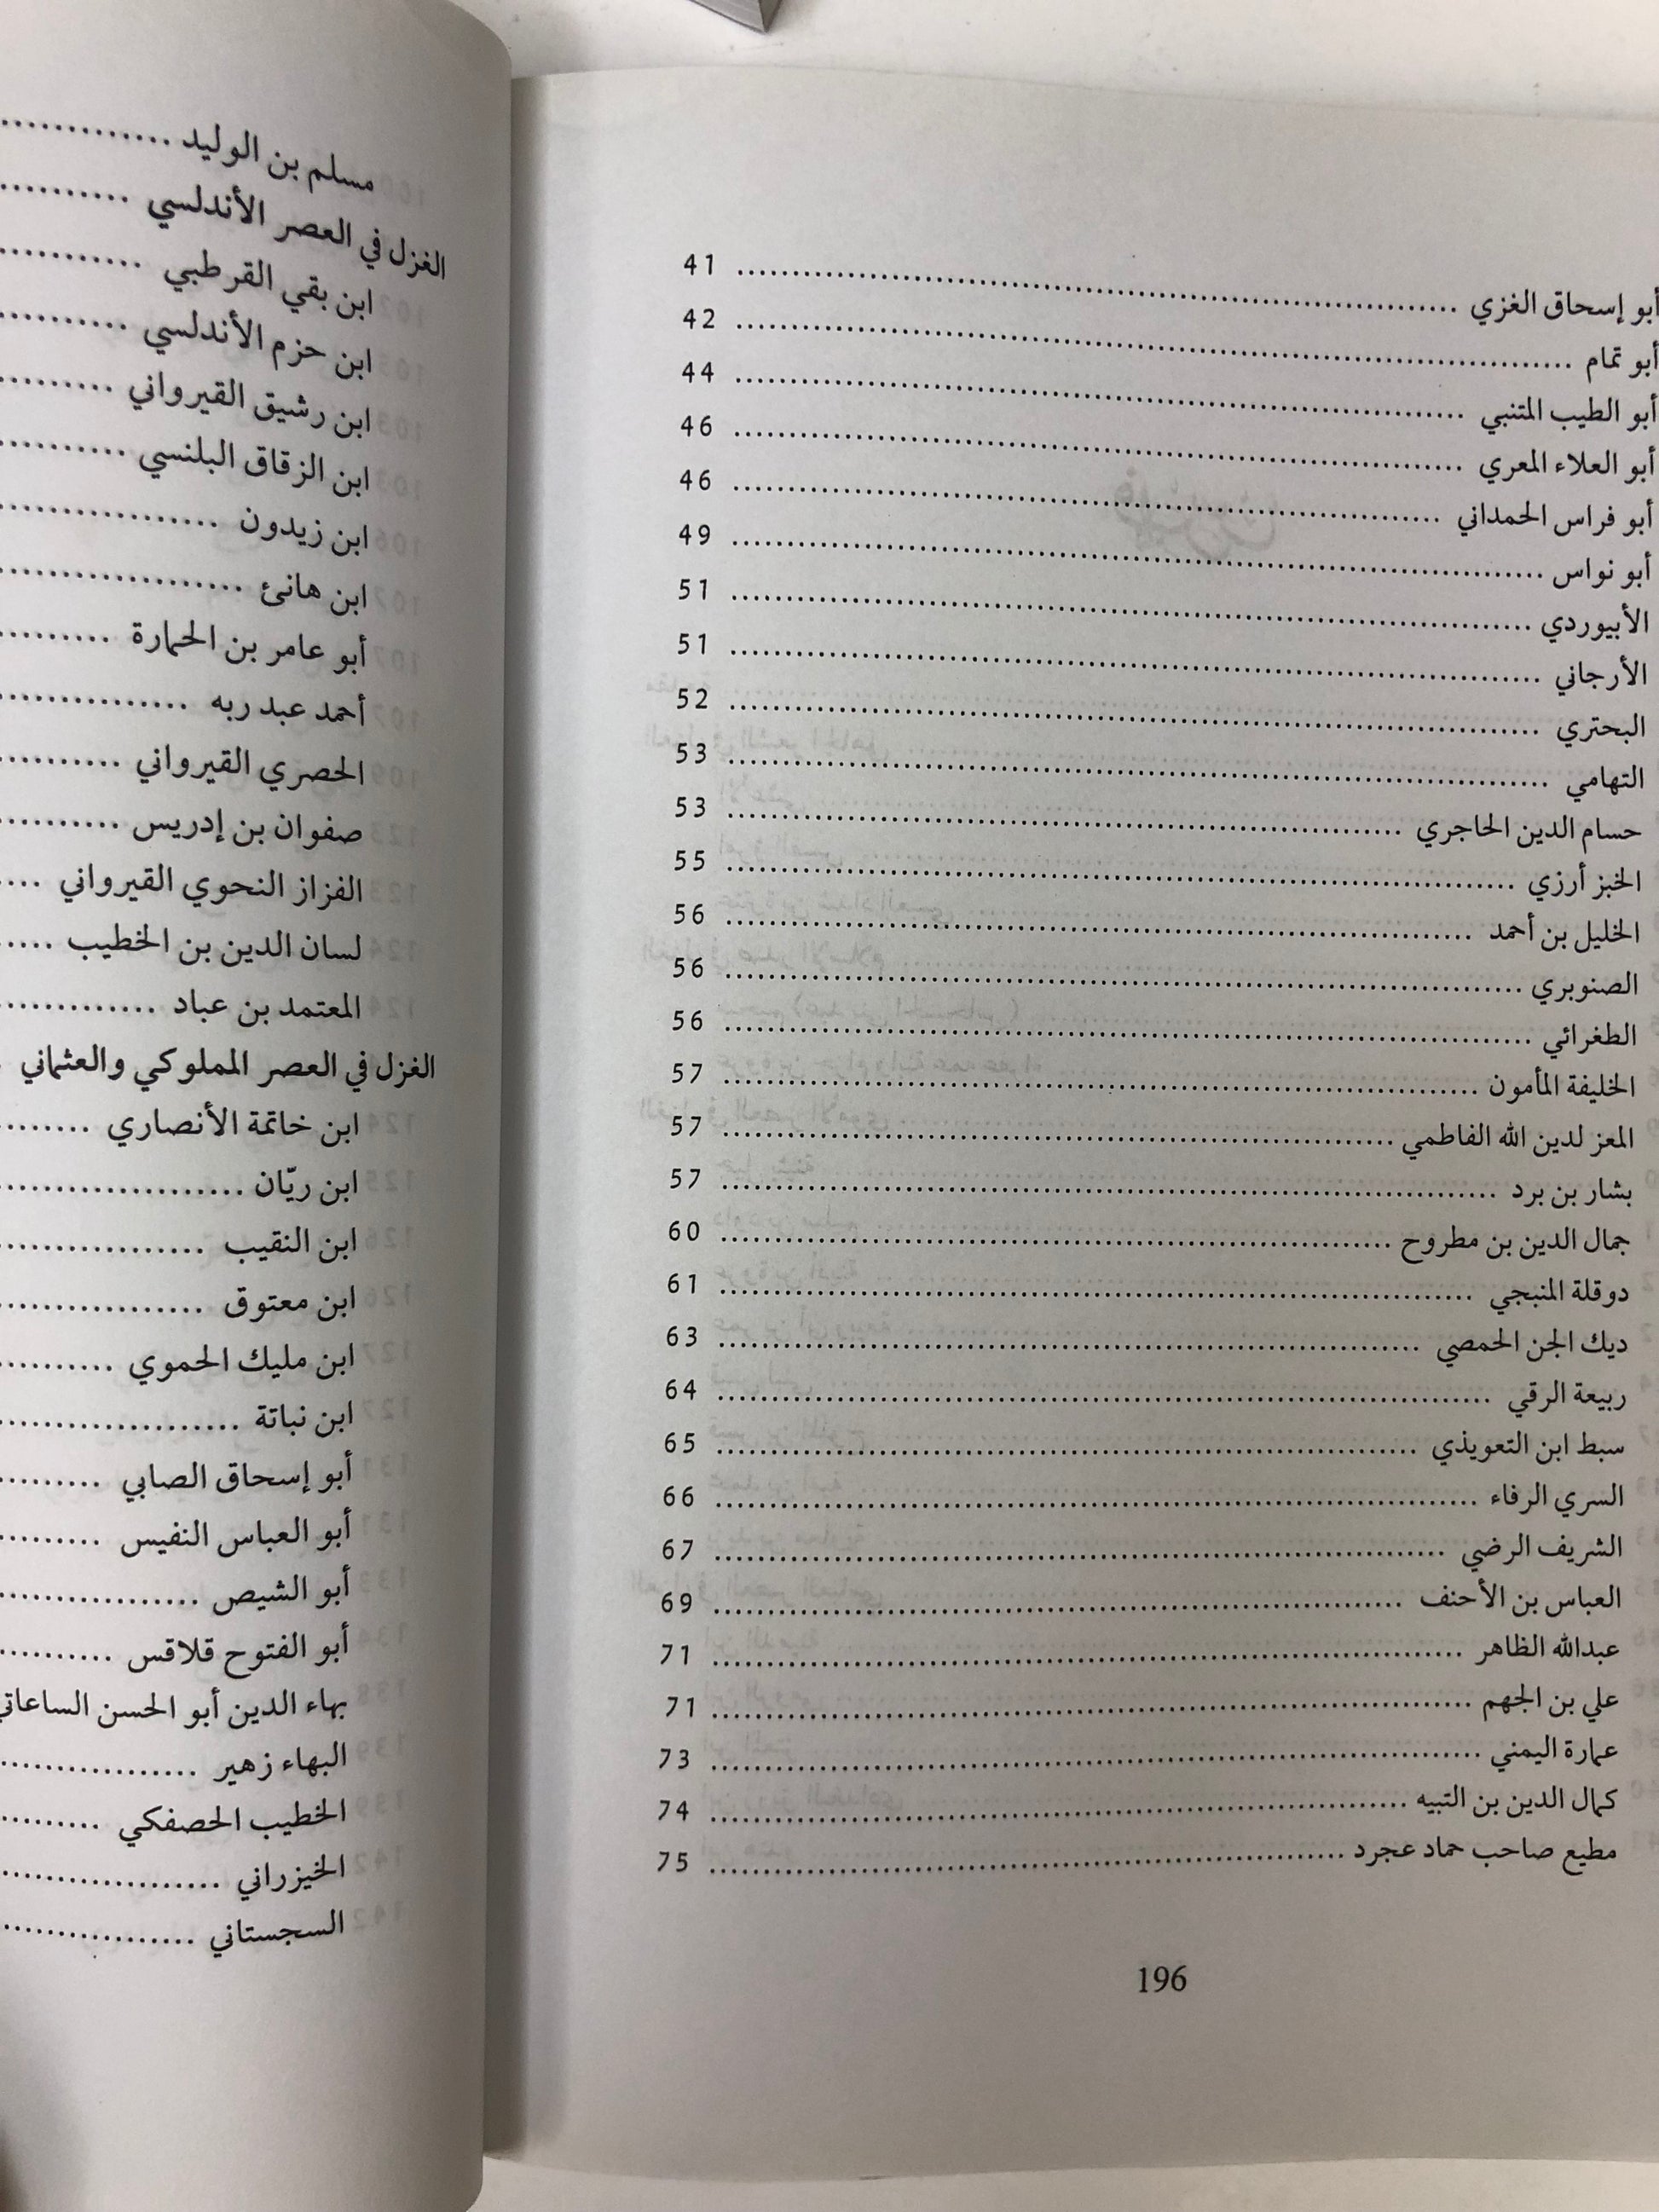 أبو إسحاق الغزي ........ 41
أبو تمام ........ 42
أبو الطيب المتنبي ........ 44
أبو العلاء المعري ........ 46
أبو فراس الحمداني ........ 46
أبو نواس ........ 49
الأبيوردي ........ 51
الأرجاني ........ 51
البحتري ........ 52
التهامي ........ 53
حسام الدين الحاجري ........ 53
الخبز أرزي ........ 55
الخليل بن أحمد ........ 56
الصنوبري ........ 56
الطغرائي ........ 56
الخليفة المأمون ........ 57
المعز لدين الله الفاطمي ........ 57
بشار بن برد ........ 57
جمال الدين بن مطروح ........ 60
دوقلة المنبجي ........ 61
ديك الجن الحمصي ........ 63
ربيعة الرقي ........ 64
سبط ابن التعويذي ........ 65
السري الرفاء ........ 66
الشريف الرضي ........ 67
العباس بن الأحنف ........ 69
عبدالله الظاهر ........ 71
علي بن الجهم ........ 71
عمارة اليمني ........ 73
كمال الدين بن التبيه ........ 74
مطيع صاحب حماد عجرد ........ 75
196
مسلم بن الوليد ........
الغزل في العصر الأندلسي ........
ابن بقي القرطبي ........
ابن حزم الأندلسي ........
ابن رشيق القيرواني ........
ابن الزقاق البلنسي ........
ابن زيدون ........
ابن هانئ ........
أبو عامر بن الحمارة ........
أحمد عبد ربه ........
الحصري القيرواني ........
صفوان بن إدريس ........
الفزاز النحوي القيرواني ....
لسان الدين بن الخطيب .....
المعتمد بن عباد ........
الغزل في العصر المملوكي والعثماني .
ابن خاتمة الأنصاري ........
ابن ريّان ........
ابن النقيب ........
ابن معتوق ........
ابن مليك الحموي ........
ابن نباتة ........
أبو إسحاق الصابي ........
أبو العباس النفيس ........
أبو الشيص ........
أبو الفتوح قلاقس ........
بهاء الدين أبو الحسن الساعاتي
البهاء زهير ........
الخطيب الحصفكي ........
الخيزراني ........
السجستاني ........